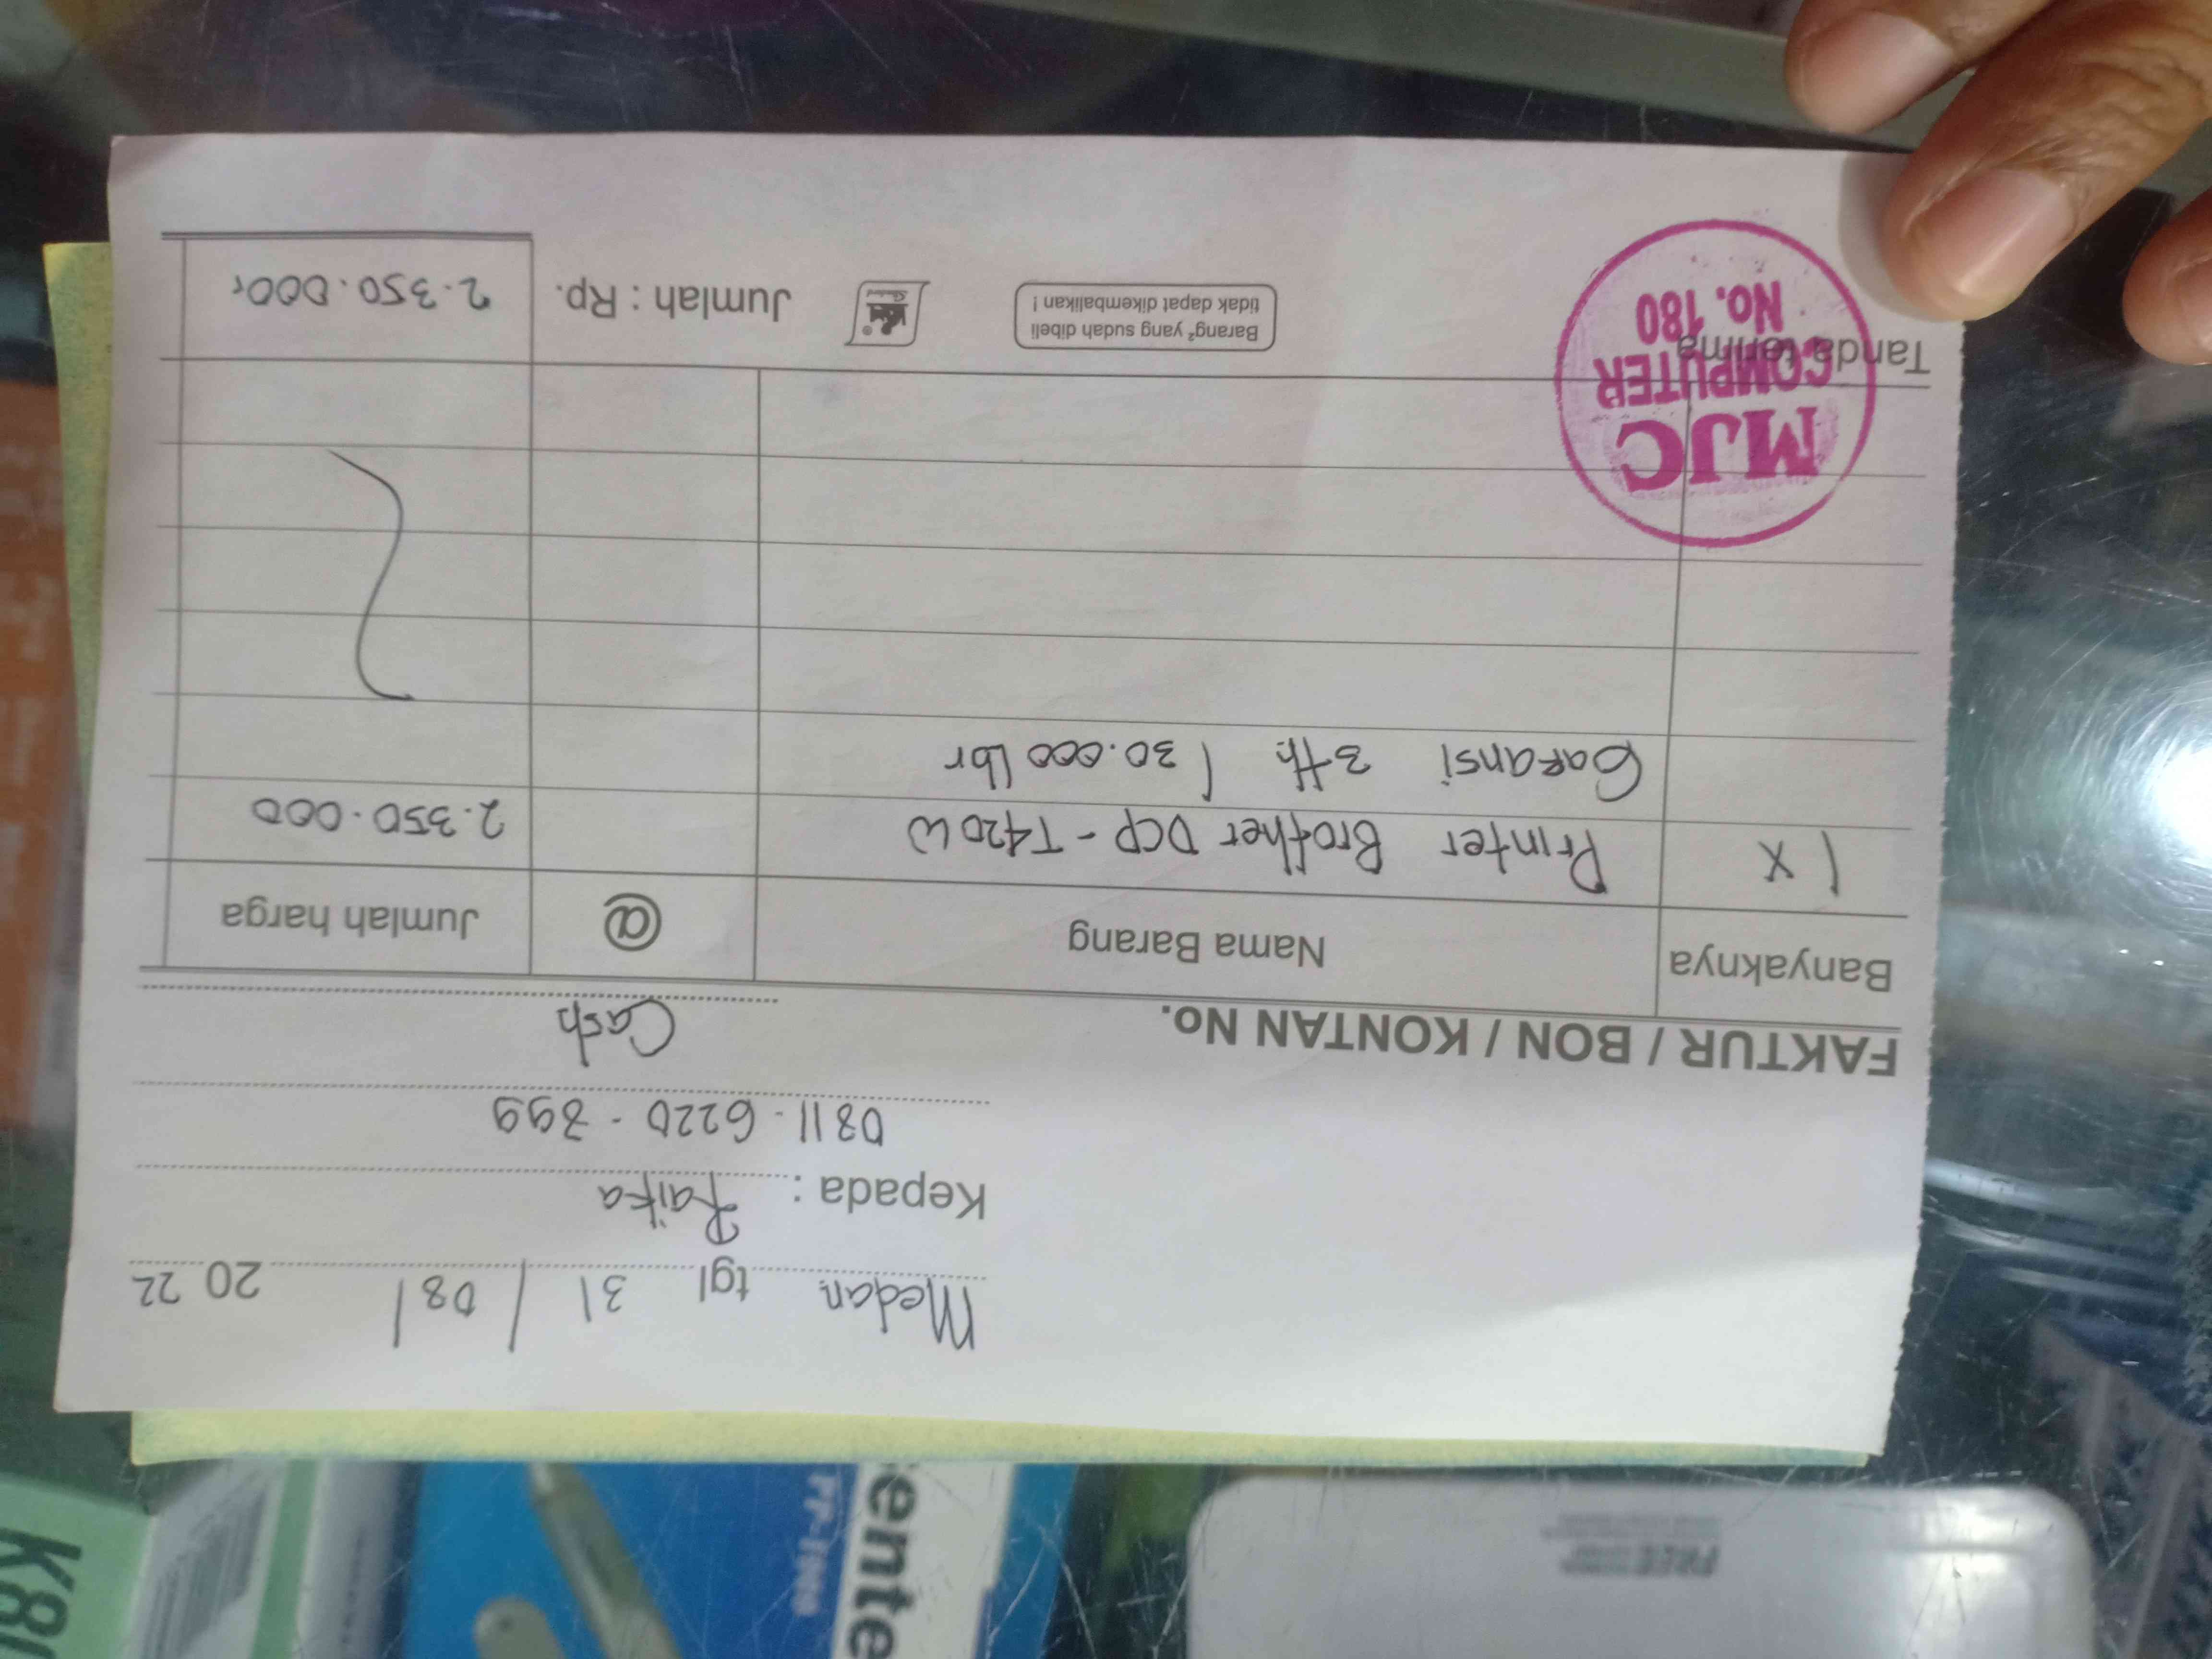 Medan tgl 31 / 08 / 20 22
Kepada : Raika
0811-6220-899
Cash
FAKTUR / BON / KONTAN No.
Banyaknya Nama Barang @ Jumlah harga
1 x Printer Brother DCP-T420W 2.350.000
Garansi 3 th / 30.000 lbr
MJC
COMPUTER
No. 180
Tanda terima
Barang² yang sudah dibeli
tidak dapat dikembalikan !
Jumlah : Rp. 2.350.000,
FREE
ente
K80